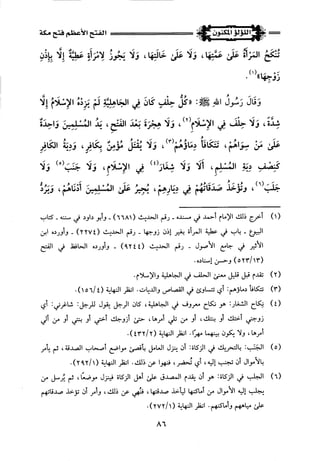 اللؤلؤ المكنون
الفتح الأعظم فتح مكة
تُنْكَحُ المَرْأَةُ عَلَى عَمَّتِهَا، وَلَا عَلَى خَالَتِهَا، وَلَا يَجُوزُ لِامْرَأَةٍ عَطِيَّةٌ إِلَّا بِإِذْنِ
زَوْجِهَا»(١).
وَقَالَ رَسُولُ اللهِ ﷺ: «كُلُّ حِلْفٍ كَانَ فِي الجَاهِلِيَّةِ لَمْ يَزِدْهُ الإِسْلَامُ إِلَّا
شِدَّةً، وَلَا حِلْفَ فِي الإِسْلَامِ(٢)، وَلَا هِجْرَةَ بَعْدَ الفَتْحِ، يَدُ المُسْلِمِينَ وَاحِدَةٌ
عَلَى مَنْ سِوَاهُمْ، تَتَكَافَأُ دِمَاؤُهُمْ(٣)، وَلَا يُقْتَلُ مُؤْمِنٌ بِكَافِرٍ، وَدِيَةُ الكَافِرِ
كَنِصْفِ دِيَةِ المُسْلِمِ، أَلَا وَلَا شِغَارَ(٤) فِي الإِسْلَامِ، وَلَا جَنَبَ(٥) وَلَا
جَلَبَ(٦)، وَتُؤْخَذُ صَدَقَاتُهُمْ فِي دِيَارِهِمْ، يُجِيرُ عَلَى المُسْلِمِينَ أَدْنَاهُمْ، وَيَرُدُّ
(١) أخرج ذلك الإمام أحمد في مسنده - رقم الحديث (٦٦٨١) - وأبو داود في سننه - كتاب
البيوع - باب في عطية المرأة بغير إذن زوجها - رقم الحديث (٢٢٧٤) - وأورده ابن
الأثير في جامع الأصول - رقم الحديث (٩٢٤٤) - وأورده الحافظ في الفتح
(٥٢٣/١٣) وحسن إسناده.
(٢) تقدم قبل قليل معنى الحلف في الجاهلية والإسلام.
(٣) تتكافأ دماؤهم: أي تتساوى في القصاص والديات. انظر النهاية (١٥٦/٤).
(٤) نكاح الشغار: هو نكاح معروف في الجاهلية، كان الرجل يقول للرجل: شاغرني: أي
زوجني أختك أو بنتك، أو من تلي أمرها، حتى أزوجك أختي أو بنتي أو من ألي
أمرها، ولا يكون بينهما مهر. انظر النهاية (٤٣٢/٢).
(٥) الجَنَبُ: بالتحريك في الزكاة: أن ينزل العامل بأقصى مواضع أصحاب الصدقة، ثم يأمر
بالأموال أن تجنب إليه، أي تُحضر، فنهوا عن ذلك. انظر النهاية (٢٩٢/١).
(٦) الجلب في الزكاة: هو أن يقدم المصدق على أهل الزكاة فينزل موضعًا، ثم يُرسل من
يجلب إليه الأموال من أماكنها ليأخذ صدقتها، فنُهي عن ذلك، وأمر أن تؤخذ صدقاتهم
على مياههم وأماكنهم. انظر النهاية (٢٧٢/١).
٨٦